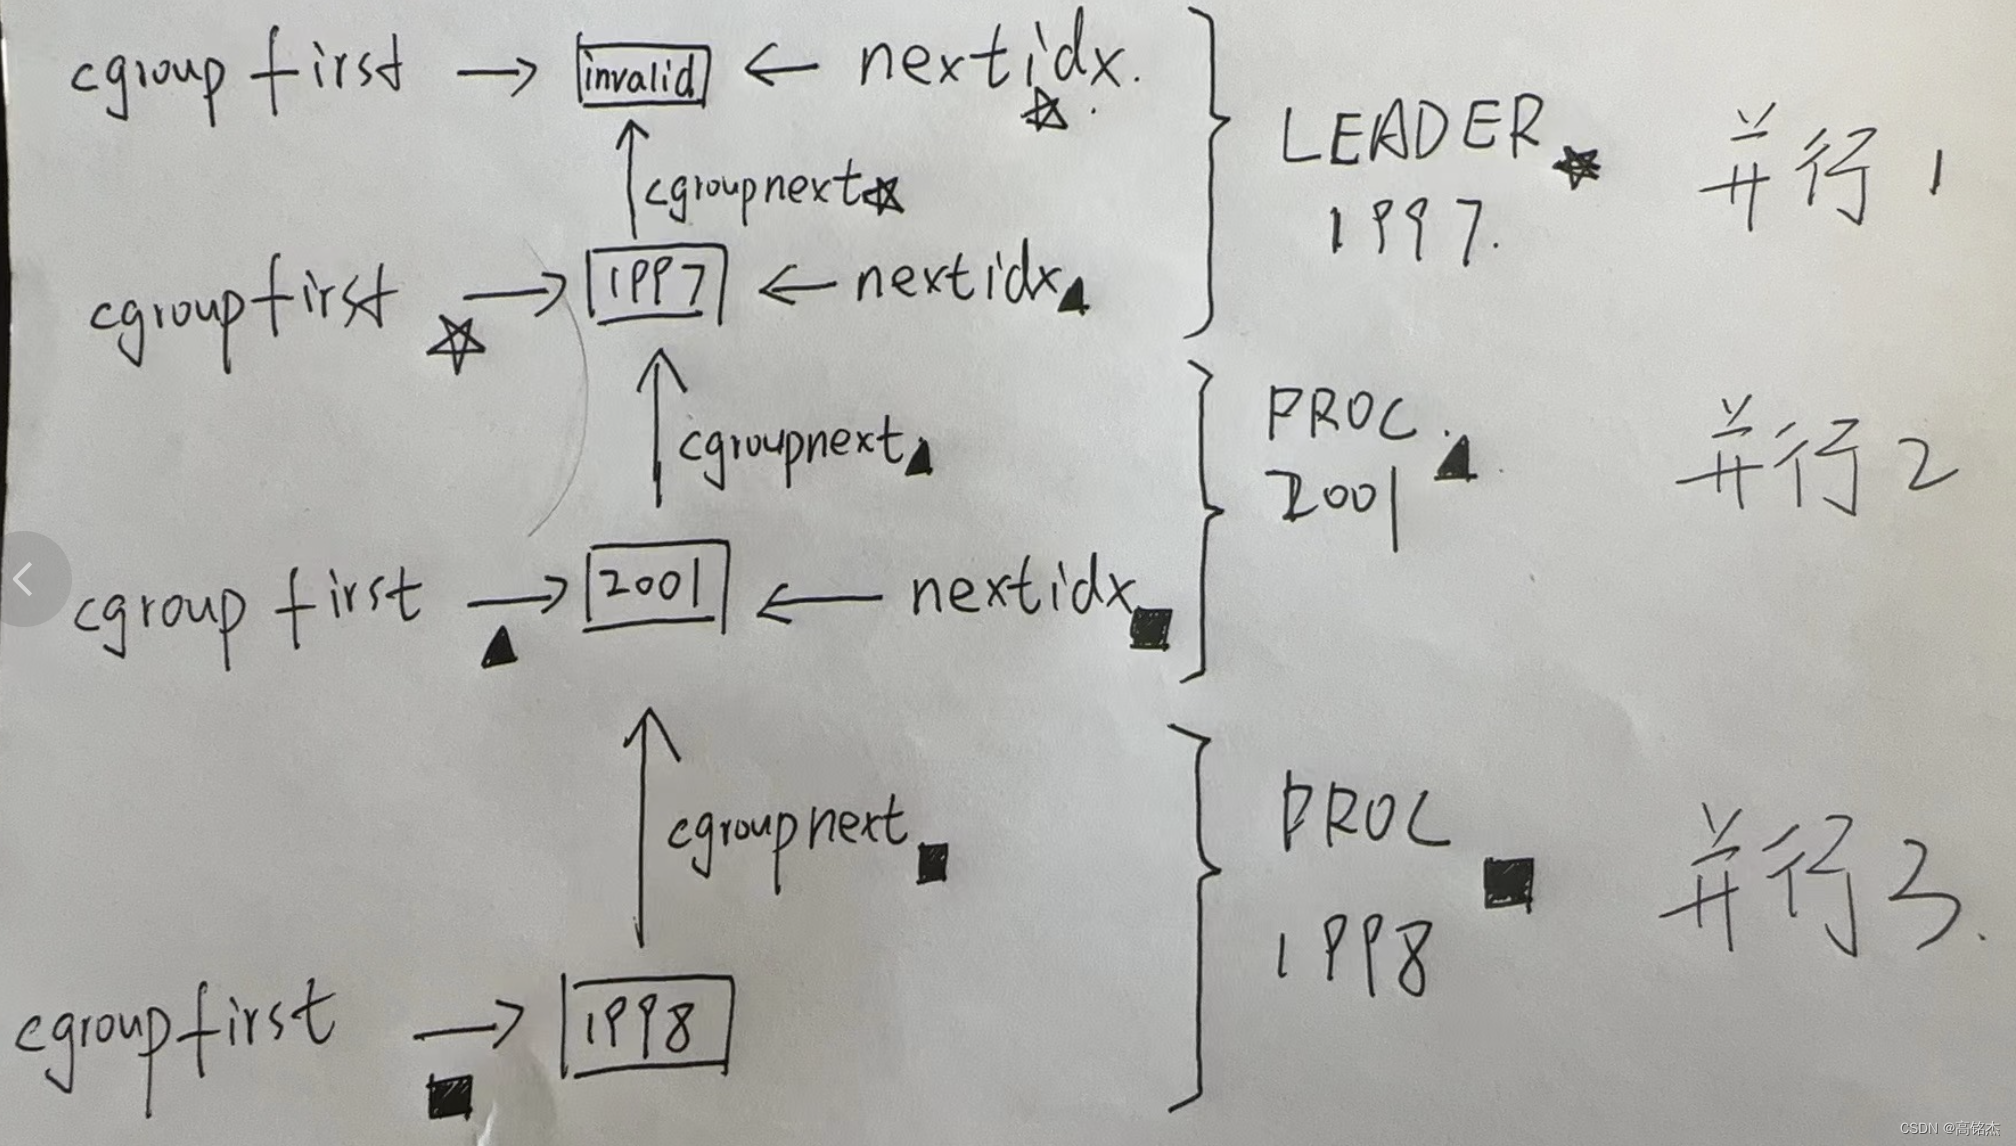 cgroup first → invalid ← nextidx.
cgroupnext
LEADER
1997.
并行1
cgroupfirst → 1997 ← nextidx
cgroupnext
PROC.
2001
并行2
cgroup first → 2001 ← nextidx
cgroupnext
PROC
1998
并行3.
cgroupfirst → 1998
CSDN @高铭杰